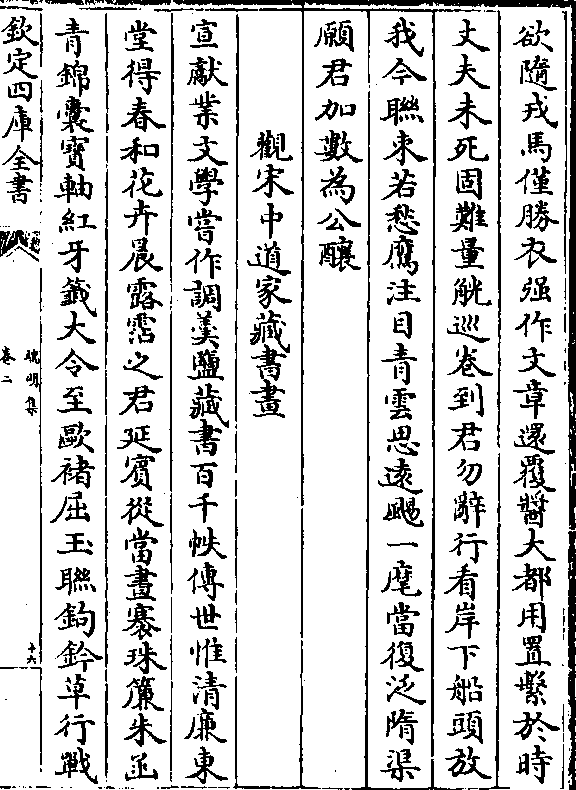 欲隨戎馬僅勝衣强作文章還覆醬大都用置繫於時
丈夫未死固難量觥巡卷到君勿辭行看岸下船頭放
我今聯束若愁鷹注目青雲思遠颺一麾當復泛隋渠
願君加數為公釀
觀宋中道家藏書畫
宣獻業文學嘗作調羮鹽藏書百千帙傳世惟清廉東
堂得春和花卉晨露霑之君延賓從當晝褰珠簾朱函
青錦囊寶軸紅牙籤大令至歐褚屈玉聯鉤鈐草行戰
欽定四庫全書
卷二
十六